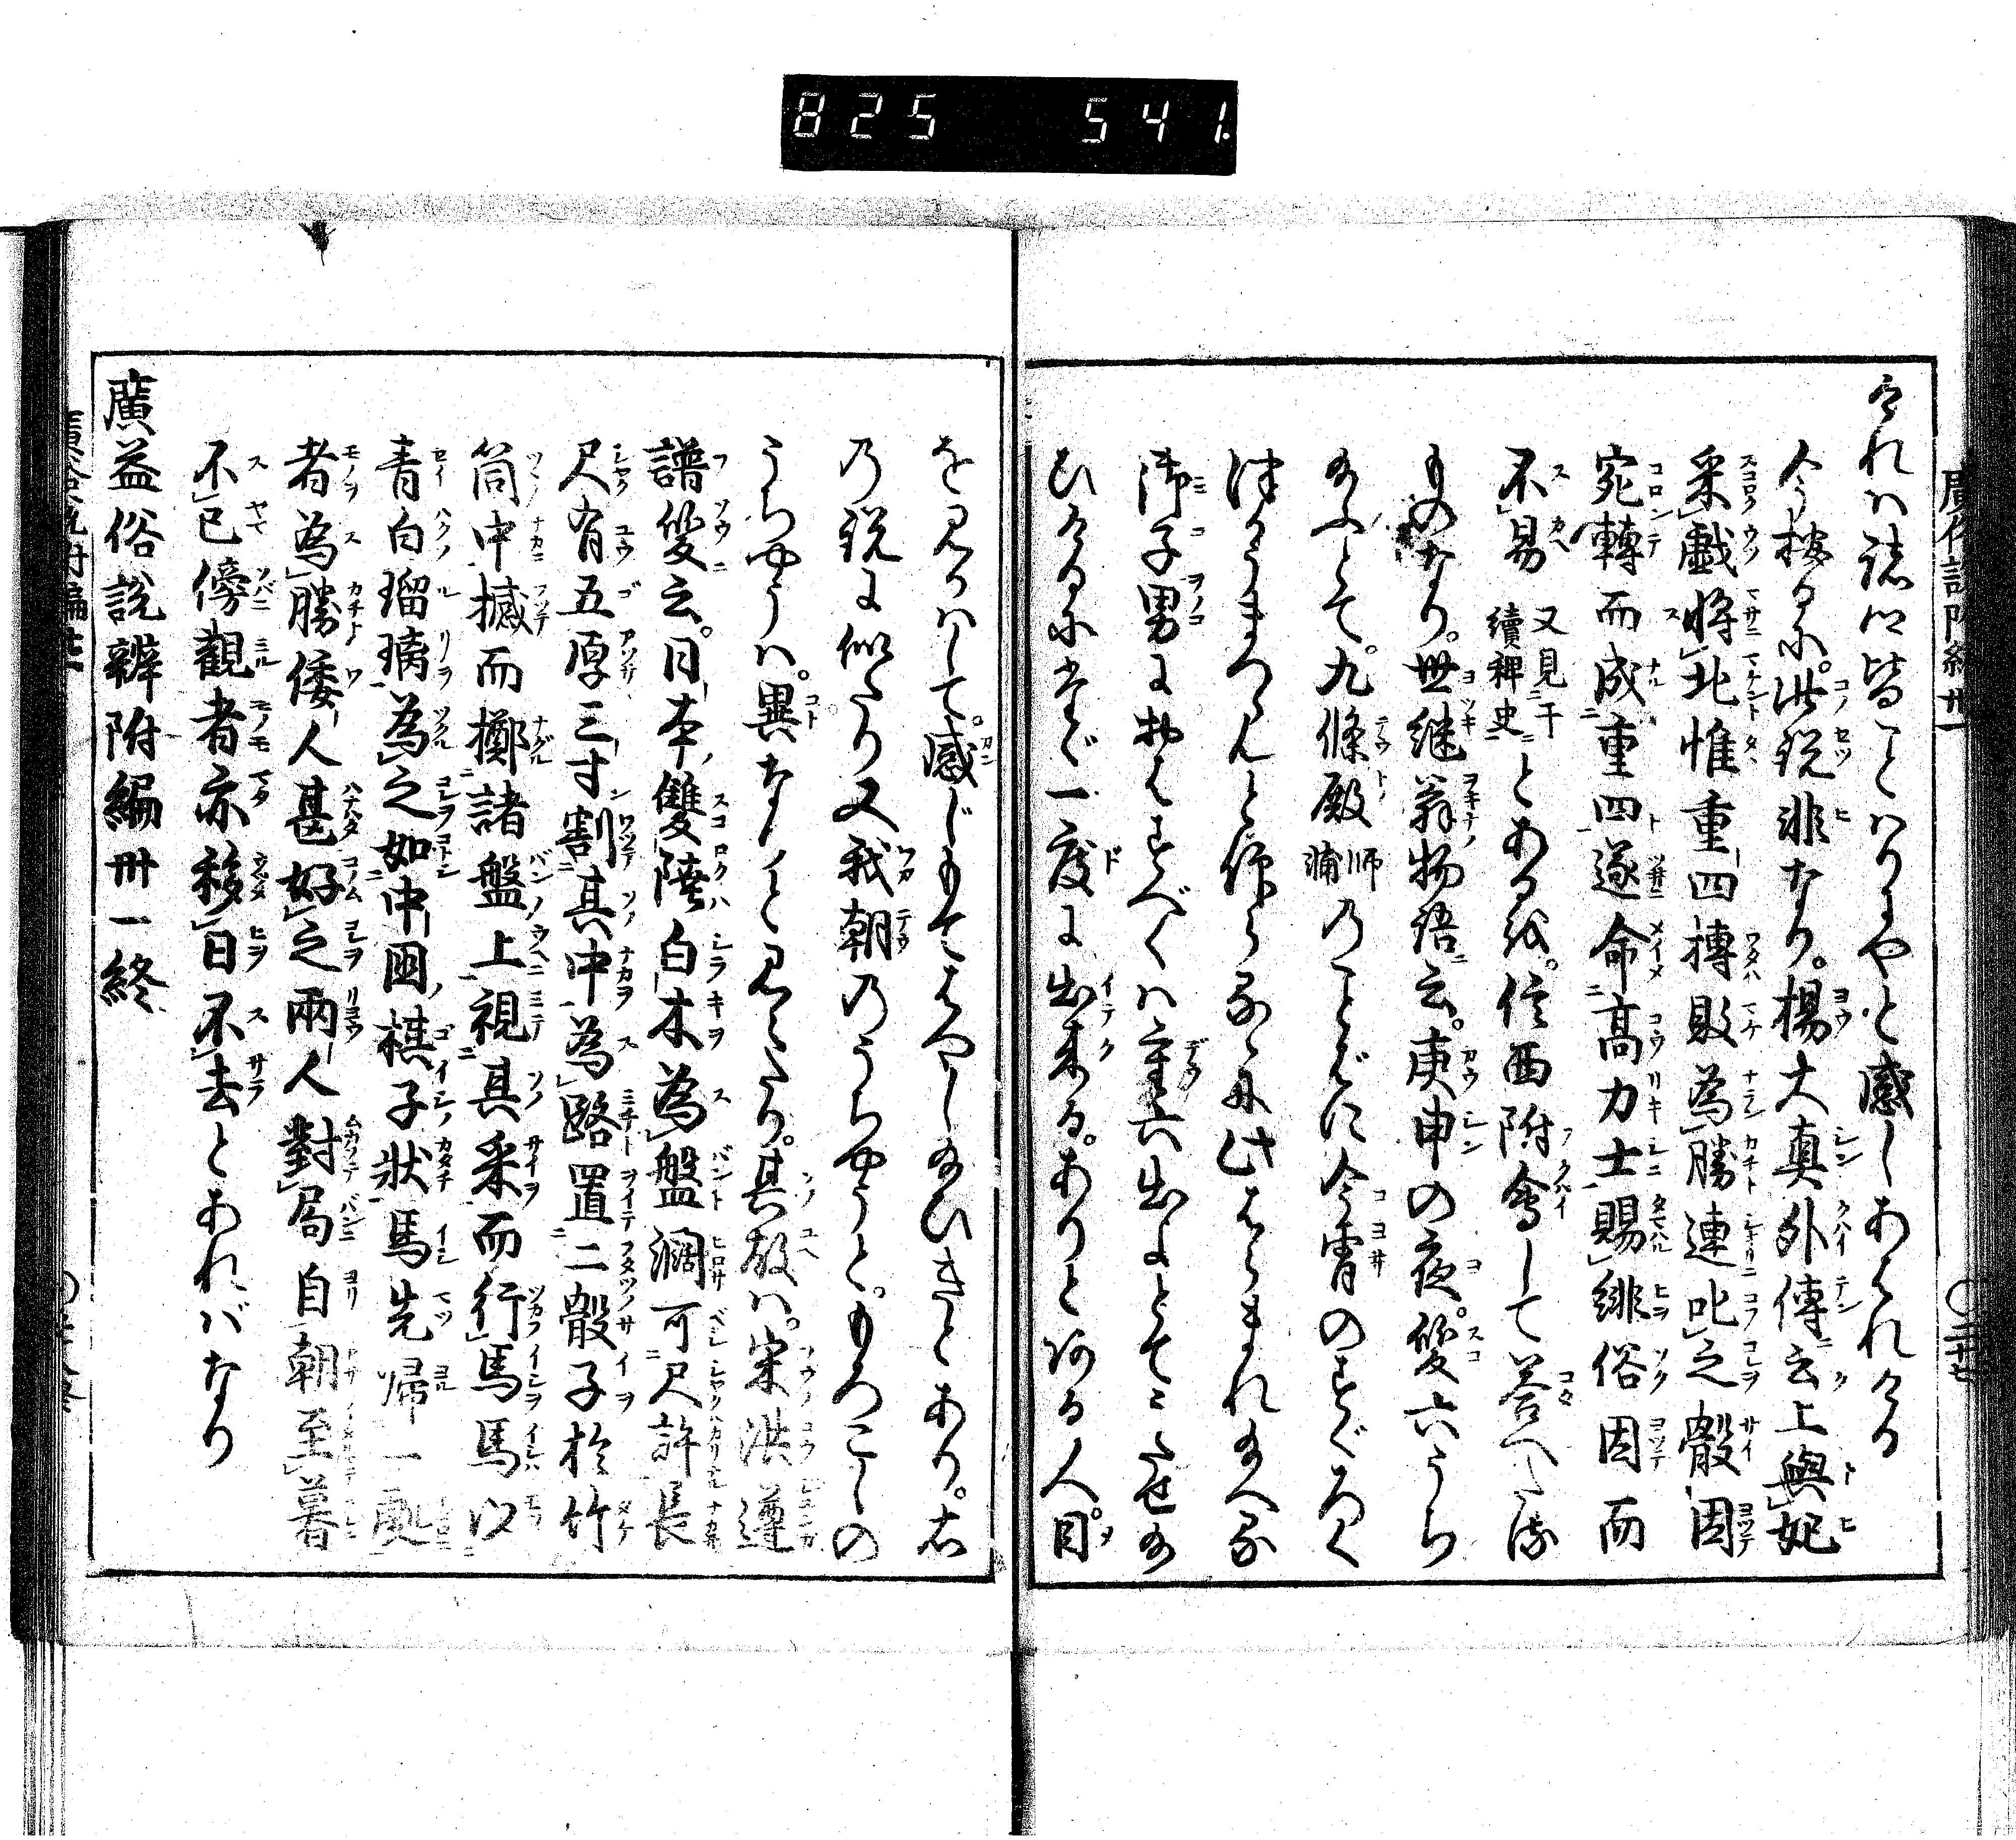 825 541
けれハ諸臣皆ことハりにやと感しあはれける
今按るに。洪説非なり。楊大真外傳云上與妃
采戯将北惟重四轉敗為勝連叱之骰因
宛轉而成重四遂命高力士賜緋俗因而
不易 又見于續稗史 とあるを。信西附會して答へたる
ものなり。世継翁物語云。庚申の夜。双六うち
給ふとて。九條殿 師浦 のことばに今宵のすぐろく
つかうまつらんと仰らるゝに此はらまれ給へる
御子男におはすべくハ重六出よとてうたせ給
ひけるにたゞ一度に出來る。ありとある人目。
を見かハして。感じもてはやし給ひきとあり。右
の説に似たり又我朝のうちやうと。もろこしの
うちやうハ。異なりと見へたり。其故ハ。宋洪遵
譜双云。日本雙陸白木為盤濶可尺許長
尺有五厚三寸割其中為路置二骰子於竹
筒中撼而擲諸盤上視其采而行馬馬以
青白瑠璃為之如中国棋子状馬先帰一處
者為勝倭人甚好之兩人對局自朝至暮
不已傍觀者亦移日不去とあれバなり
廣益俗説辨附編卅一終